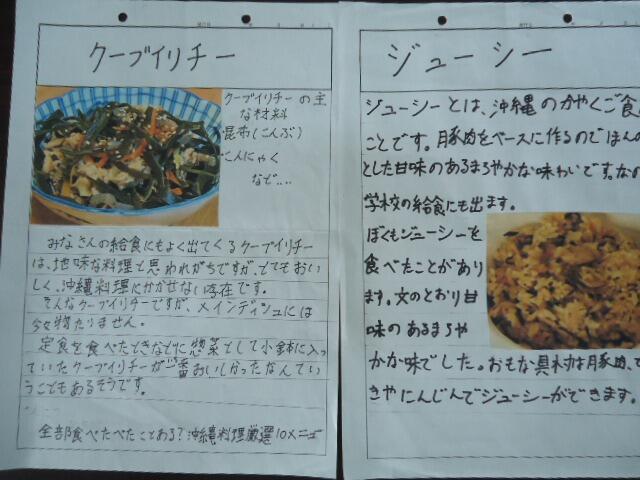 クーブイリチー
クーブイリチーの主
な材料
昆布(こんぶ)
こんにゃく
など....
みなさんの給食にもよく出てくるクーブイリチー
は、地味な料理と思われがちですが、とてもおい
しく、沖縄料理にかかせない存在です。
そんなクーブイリチーですが、メインディシュには
物たりません。
定食を食べたときなどに惣菜として小鉢に入っ
ていたクーブイリチーが一番おいしかったなんてい
うこともあるそうです。
全部食べたべたことある?沖縄料理厳選10メニュー
ジューシー
ジューシーとは、沖縄のかやくご食
ことです。豚肉をベースに作るのでほんの
とした甘味のあるまろやかな味わいです。なの
学校の給食にも出ます。
ぼくもジューシーを
食べたことがあり
ます。文のとおり甘
味のあるまろや
かな味でした。おもな具材は豚肉、
きやにんじんでジューシーができます。